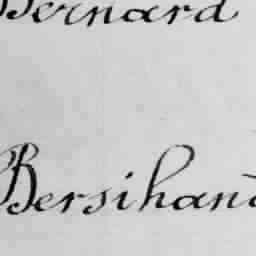 Bernard
Bersihand